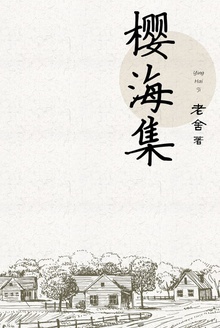 樱海集
Ying
Hai
Ji
老舍 著